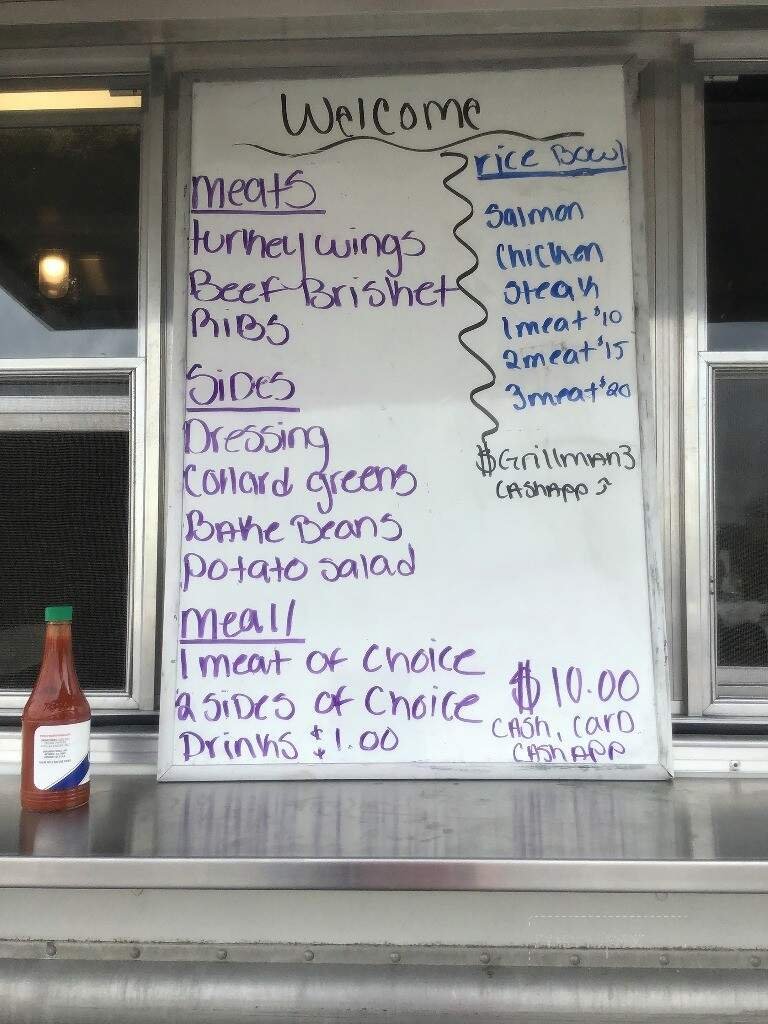 Welcome
Meats
turkey wings
Beef Brisket
Ribs
Sides
Dressing
Collard greens
Bake Beans
Potato salad
Meal
1 meat of Choice
2 Sides of Choice
Drinks $1.00
rice Bowl
Salmon
Chicken
Steak
1 meat $10
2 meat $15
3 meat $20
$Grillman3
CASHAPP
$10.00
CASH, CARD
CASHAPP